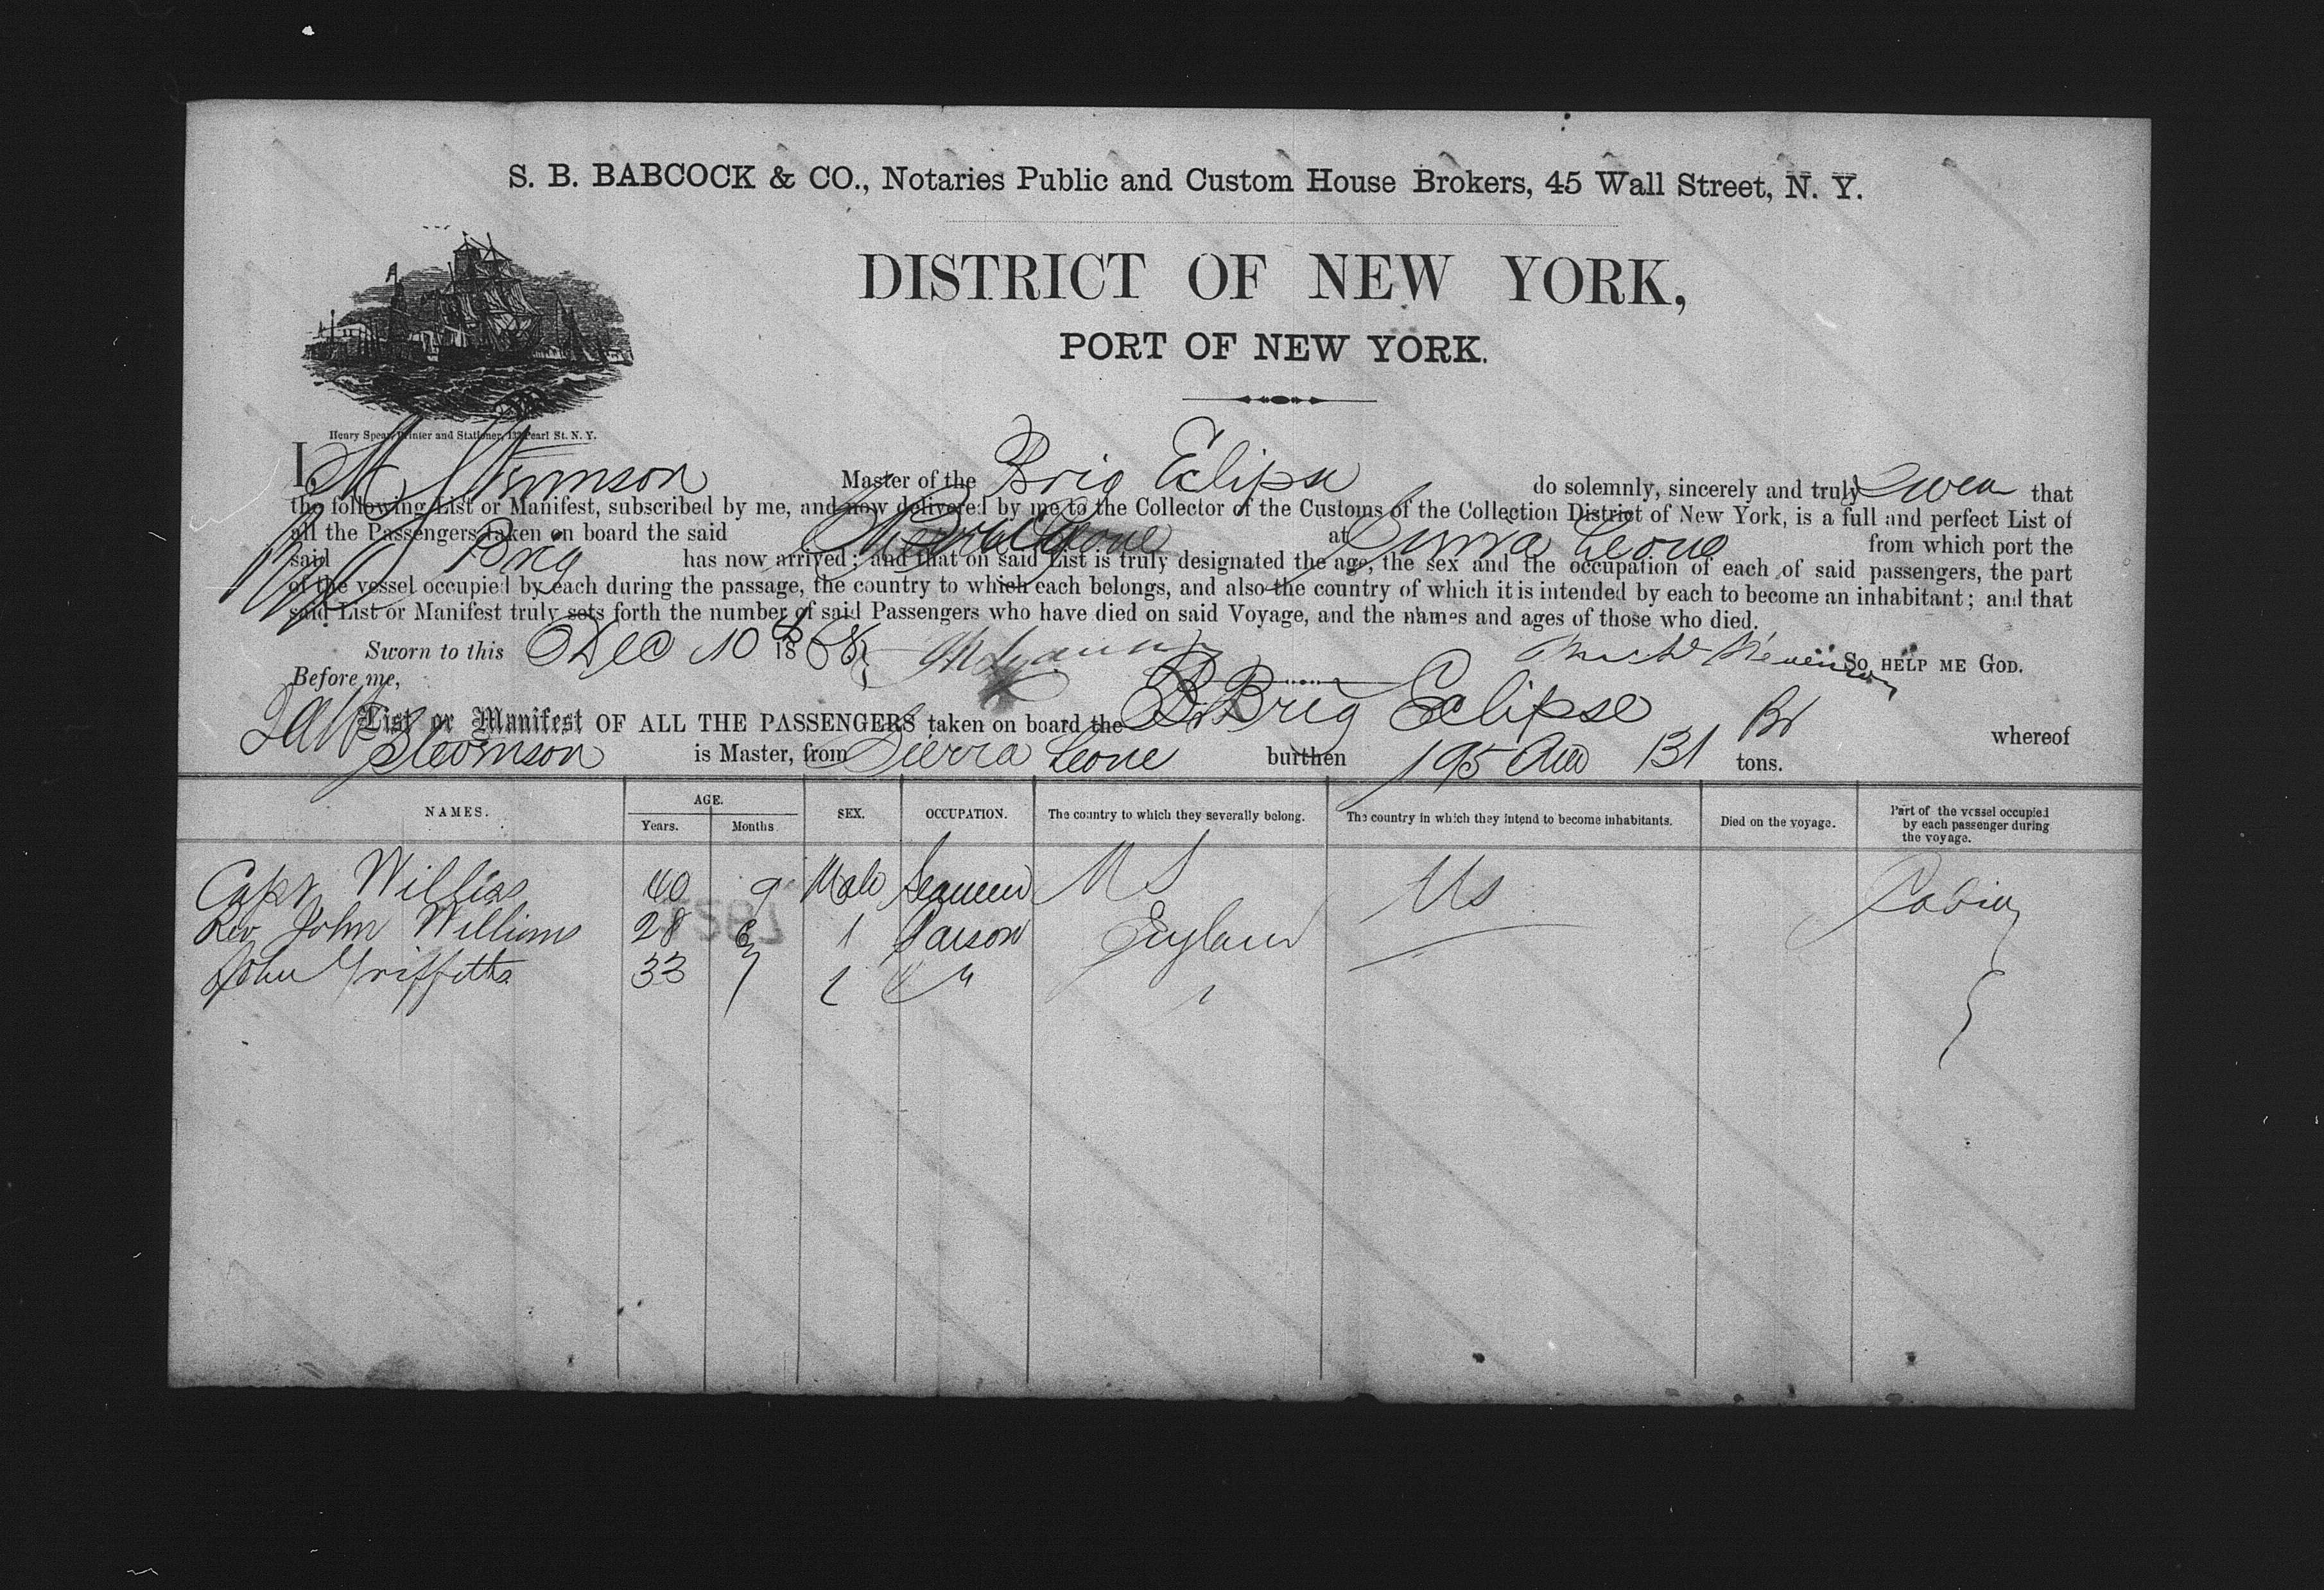 S. B. BABCOCK & CO., Notaries Public and Custom House Brokers, 45 Wall Street, N. Y.
DISTRICT OF NEW YORK,
PORT OF NEW YORK.
Henry Spear, Printer and Stationer, 133 Pearl St. N. Y.
I, Master of the Brig Eclipse do solemnly, sincerely and truly Swear that
the following List or Manifest, subscribed by me, and now delivered by me to the Collector of the Customs of the Collection District of New York, is a full and perfect List of
all the Passengers taken on board the said at Sierra Leone from which port the
said Brig has now arrived; and that on said List is truly designated the age, the sex and the occupation of each of said passengers, the part
of the vessel occupied by each during the passage, the country to which each belongs, and also the country of which it is intended by each to become an inhabitant; and that
said List or Manifest truly sets forth the number of said Passengers who have died on said Voyage, and the names and ages of those who died.
Sworn to this Dec 10 1868 SO HELP ME GOD.
Before me,
List or Manifest OF ALL THE PASSENGERS taken on board the Br Brig Eclipse whereof
Stevenson is Master, from Sierra Leone burthen 195 131 tons.
NAMES. AGE. Years. Months SEX. OCCUPATION. The country to which they severally belong. The country in which they intend to become inhabitants. Died on the voyage. Part of the vessel occupied by each passenger during the voyage.
Capt Willis 40 9 Male Seamen U S Us Cabin
Rev John Williams 28 6 Parson England
John Griffiths 33 7 " "